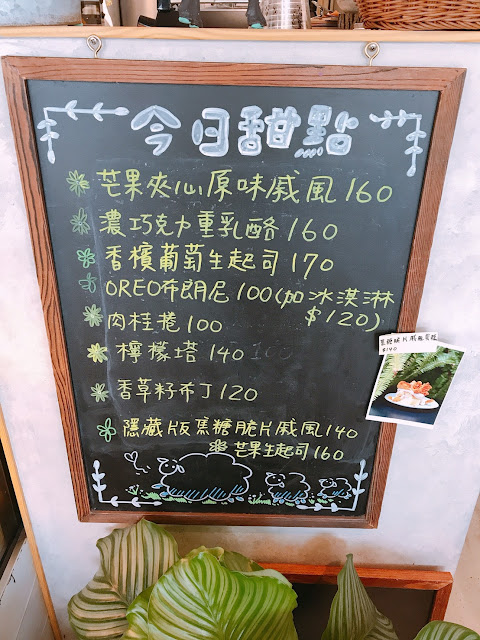 今日甜點
芒果夾心原味戚風160
濃巧克力重乳酪160
香檳葡萄生起司170
OREO布朗尼100(加冰淇淋
$120)
肉桂捲100
檸檬塔140
香草籽布丁120
隱藏版焦糖脆片戚風140
芒果生起司160
焦糖脆片戚風蛋糕
$140